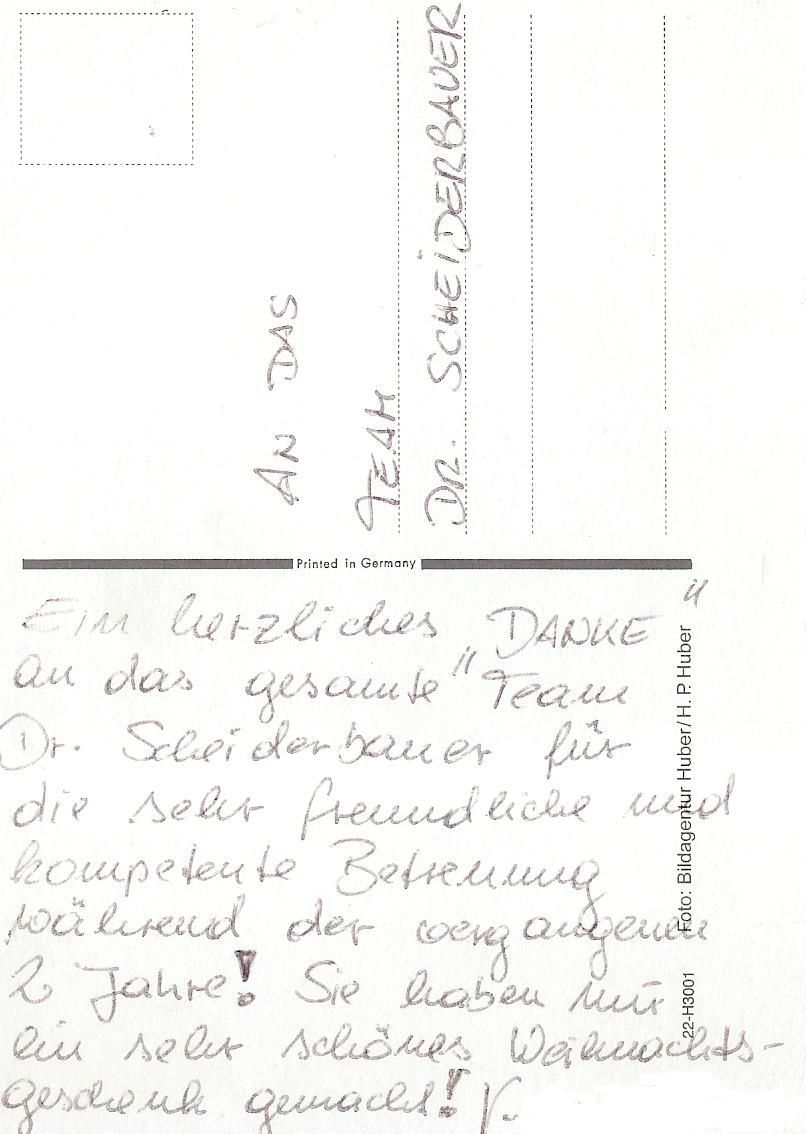 AN DAS
TEAM
DR. SCHEIDERBAUER
Printed in Germany
Ein herzliches "DANKE"
an das gesamte "Team
Dr. Scheiderbauer für
die sehr freundliche und
kompetente Betreuung
während der vergangenen
2 Jahre! Sie haben mir
ein sehr schönes Weihnachts-
geschenk gemacht! V.
22-H3001 Foto: Bildagentur Huber/H. P. Huber